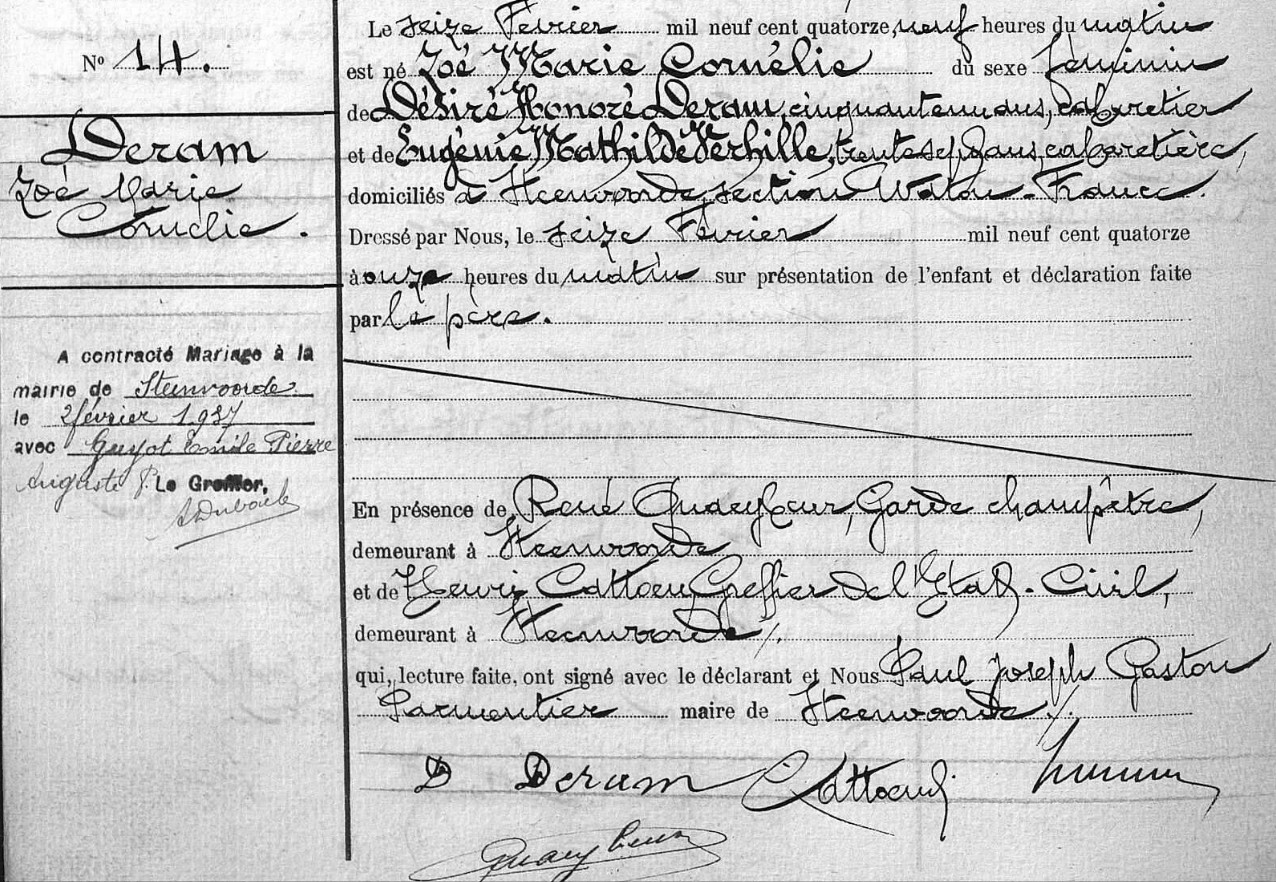 Nº 14.
Deram
Zoé Marie
Cornélie.
A contracté Mariage à la
mairie de Steenvoorde
le 2 février 1937
avec Guyot Emile Pierre
Auguste Le Greffier,
Le seize Février mil neuf cent quatorze, neuf heures du matin
est né Zoé Marie Cornélie du sexe féminin
de Désiré Honoré Deram, cinquante un ans, cabaretier
et de Eugénie Mathilde Verhille, trente sept ans, cabaretière,
domiciliés à Steenvoorde, section Watou-France.
Dressé par Nous, le seize Février mil neuf cent quatorze
à onze heures du matin sur présentation de l'enfant et déclaration faite
par le père.
En présence de René Quaeybeur, Garde champêtre,
demeurant à Steenvoorde
et de Henri Cattoen Greffier de l'Etat-Civil,
demeurant à Steenvoorde
qui, lecture faite, ont signé avec le déclarant et Nous Paul Joseph Gaston
Parmentier maire de Steenvoorde
D Deram Cattoen
Quaeybeur